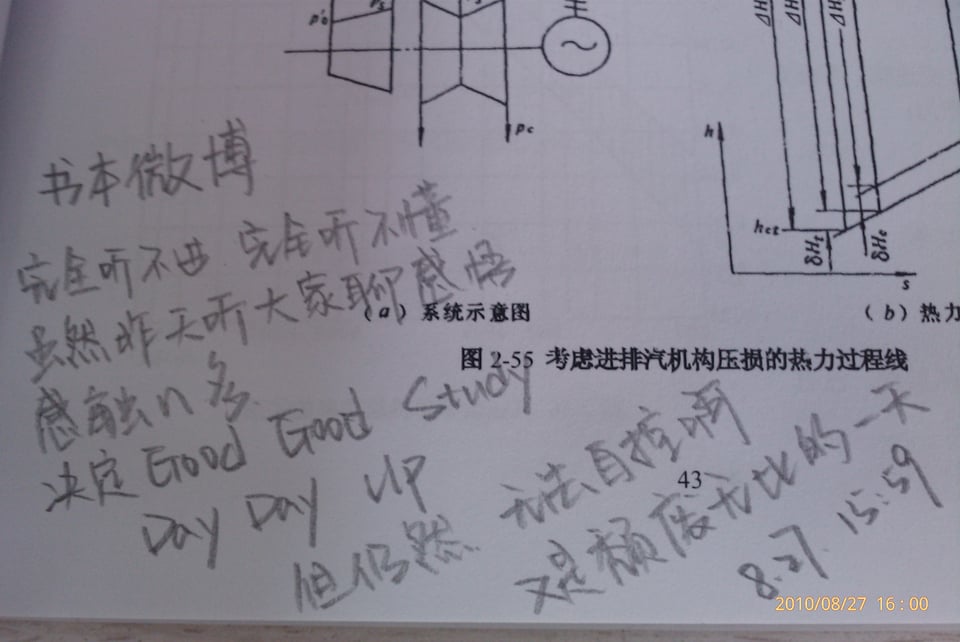 p'₀
p_c
ΔH
ΔH
ΔH
h
h_ct
δH_t
δH_c
s
(a) 系统示意图
(b) 热力
图 2-55 考虑进排汽机构压损的热力过程线
43
书本微博
完全听不进 完全听不懂
虽然昨天听大家聊感悟
感触n多
决定Good Good Study
Day Day UP
但仍然
无法自控啊
又是颓废无比的一天
8.27. 15:59
2010/08/27 16:00